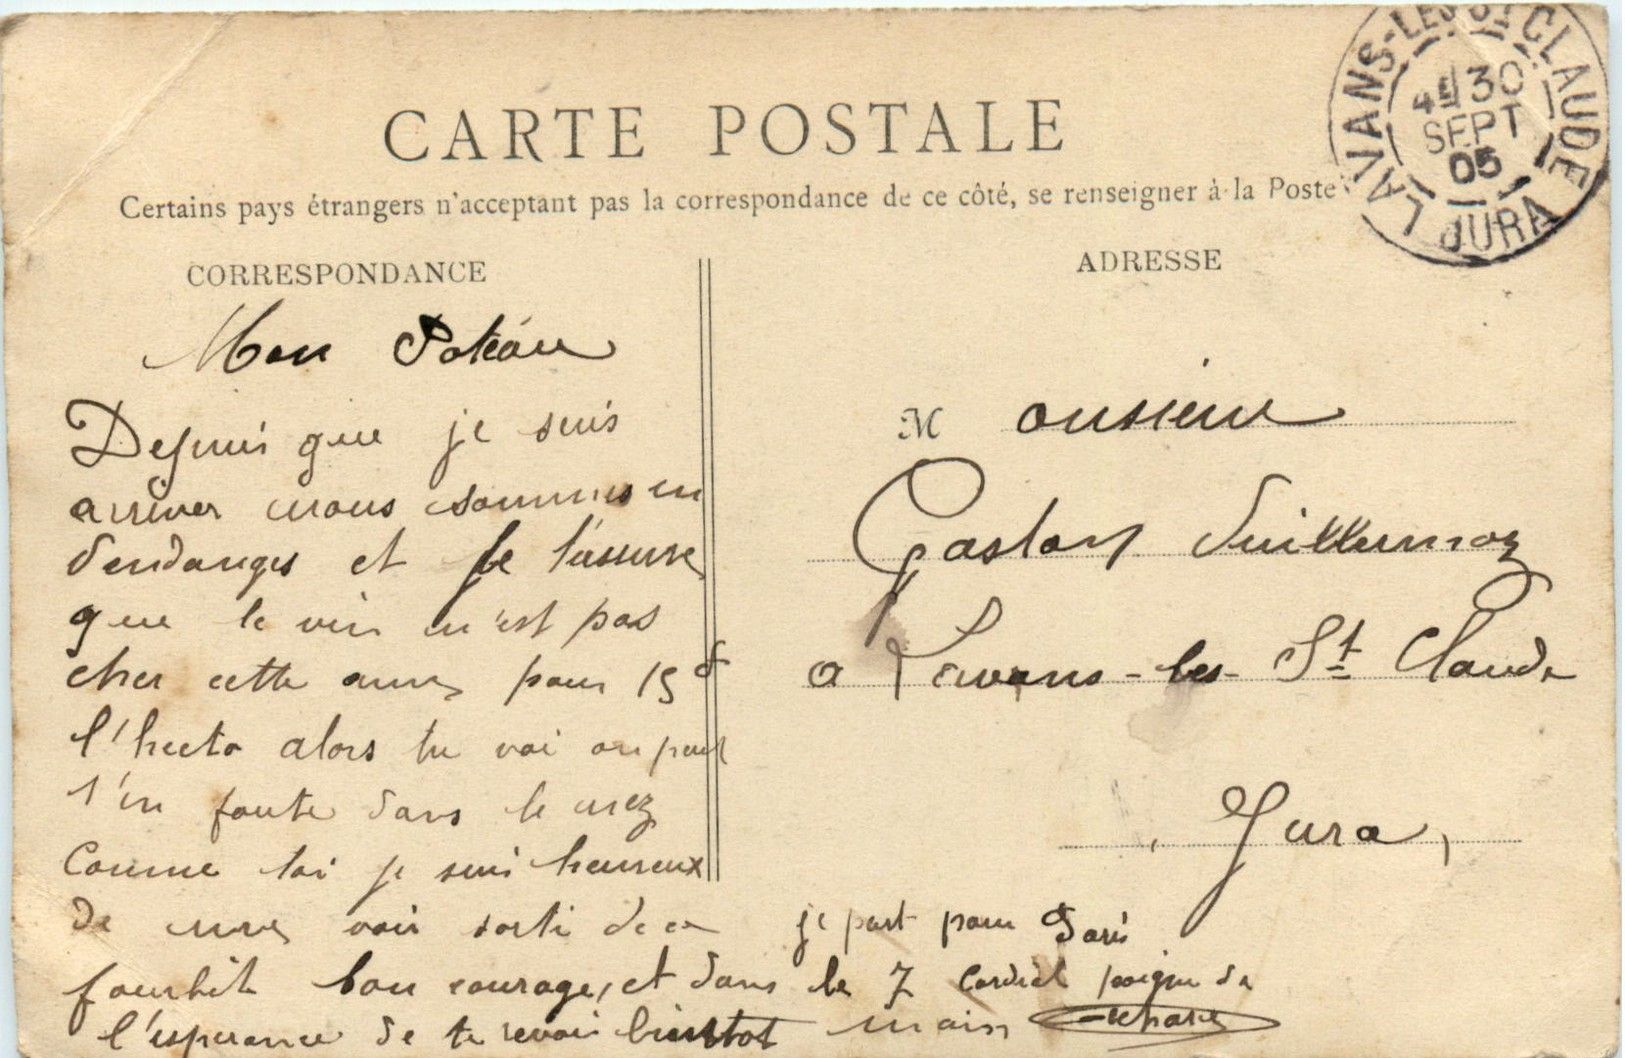 CARTE POSTALE
Certains pays étrangers n'acceptent pas la correspondance de ce côté, se renseigner à la Poste
LAVANS-LES-ST CLAUDE
4E 30
SEPT
05
JURA
CORRESPONDANCE
Mon Poteau
Depuis que je suis
arriver nous sommes en
vendanges et je t'assure
que le vin n'est pas
cher cette année pour 15f
l'hecto alors tu voi on peut
s'en foute dans le nez
Comme toi je suis heureux
de me voir sorti de ce
fourbit bon courage, et dans
l'esperance de te revoir bientot
ADRESSE
Monsieur
Gaston Vuillermoz
a Lavans-les-St Claude
Jura,
je part pour Paris
le 7 Cordial poigne de
main